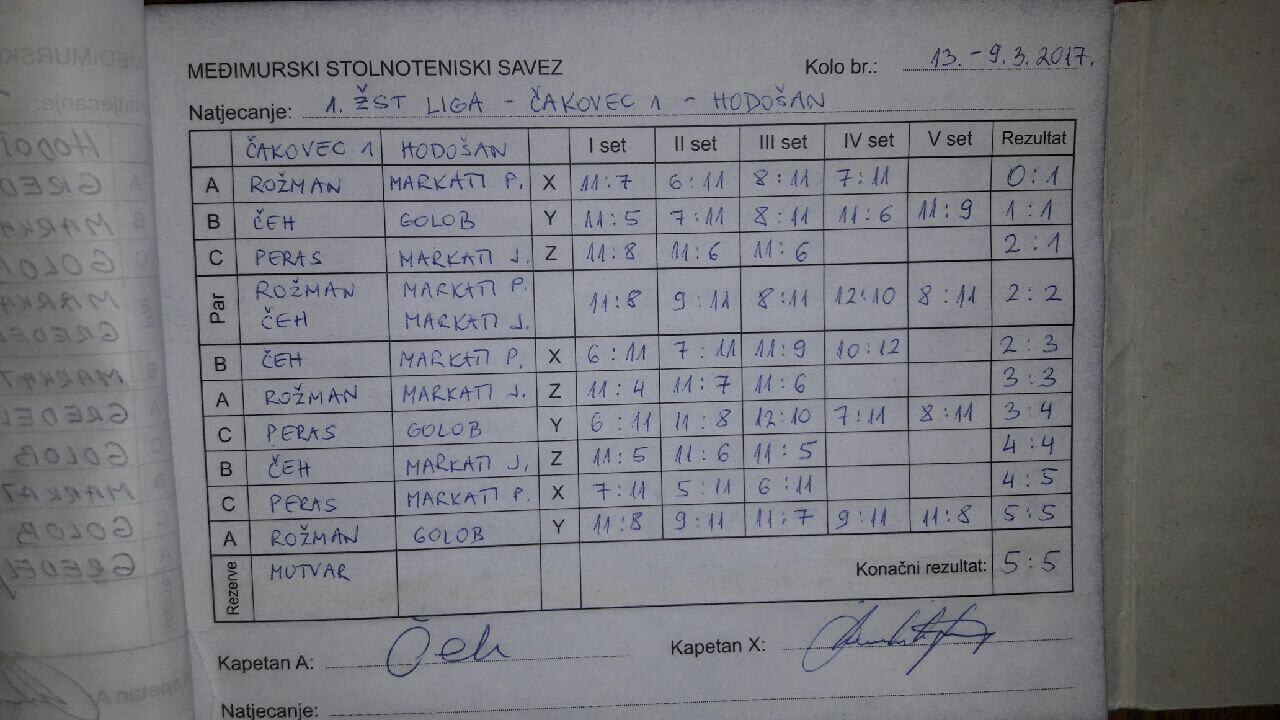 MEĐIMURSKI STOLNOTENISKI SAVEZ Kolo br.: 13. - 9.3.2017.
Natjecanje: 1. ŽST LIGA - ČAKOVEC 1 - HODOŠAN
ČAKOVEC 1 HODOŠAN I set II set III set IV set V set Rezultat
A ROŽMAN MARKATI P. X 11:7 6:11 8:11 7:11 0:1
B ČEH GOLOB Y 11:5 7:11 8:11 11:6 11:9 1:1
C PERAS MARKATI J. Z 11:8 11:6 11:6 2:1
Par ROŽMAN MARKATI P. 11:8 9:11 8:11 12:10 8:11 2:2
ČEH MARKATI J.
B ČEH MARKATI P. X 6:11 7:11 11:9 10:12 2:3
A ROŽMAN MARKATI J. Z 11:4 11:7 11:6 3:3
C PERAS GOLOB Y 6:11 11:8 12:10 7:11 8:11 3:4
B ČEH MARKATI J. Z 11:5 11:6 11:5 4:4
C PERAS MARKATI P. X 7:11 5:11 6:11 4:5
A ROŽMAN GOLOB Y 11:8 9:11 11:7 9:11 11:8 5:5
Rezerve MUTVAR Konačni rezultat: 5:5
Kapetan A: Čeh Kapetan X:
Natjecanje: